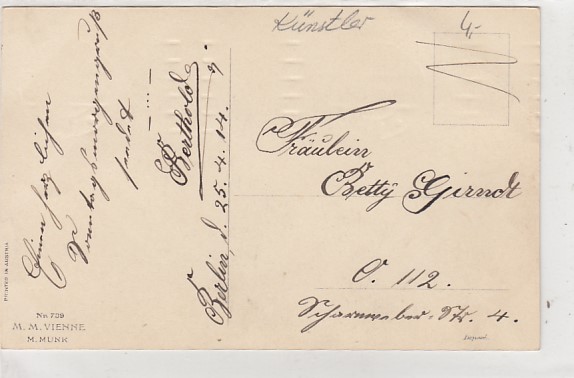 Künstler
4,-
Einen herzlichen
Sonntagsmorgengruß
sendet
Berthold
Berlin, d. 25.4.14.
Fräulein
Betty Girndt
O. 112.
Scharnweber-Str. 4.
PRINTED IN AUSTRIA
Nr. 789
M. M. VIENNE
M. MUNK